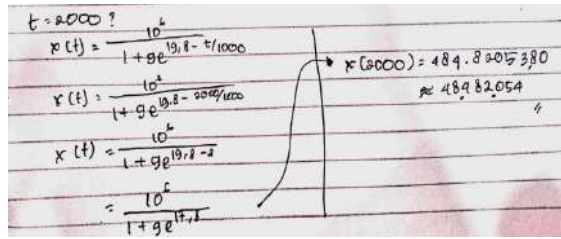 t = 2000 ?
x(t) = 10⁶ / 1 + 9e^19,8 - t/1000
x(t) = 10⁶ / 1 + 9e^19,8 - 2000/1000
x(t) = 10⁶ / 1 + 9e^19,8 - 2
= 10⁶ / 1 + 9e^17,8
x(2000) = 484.8205380
≈ 48482054